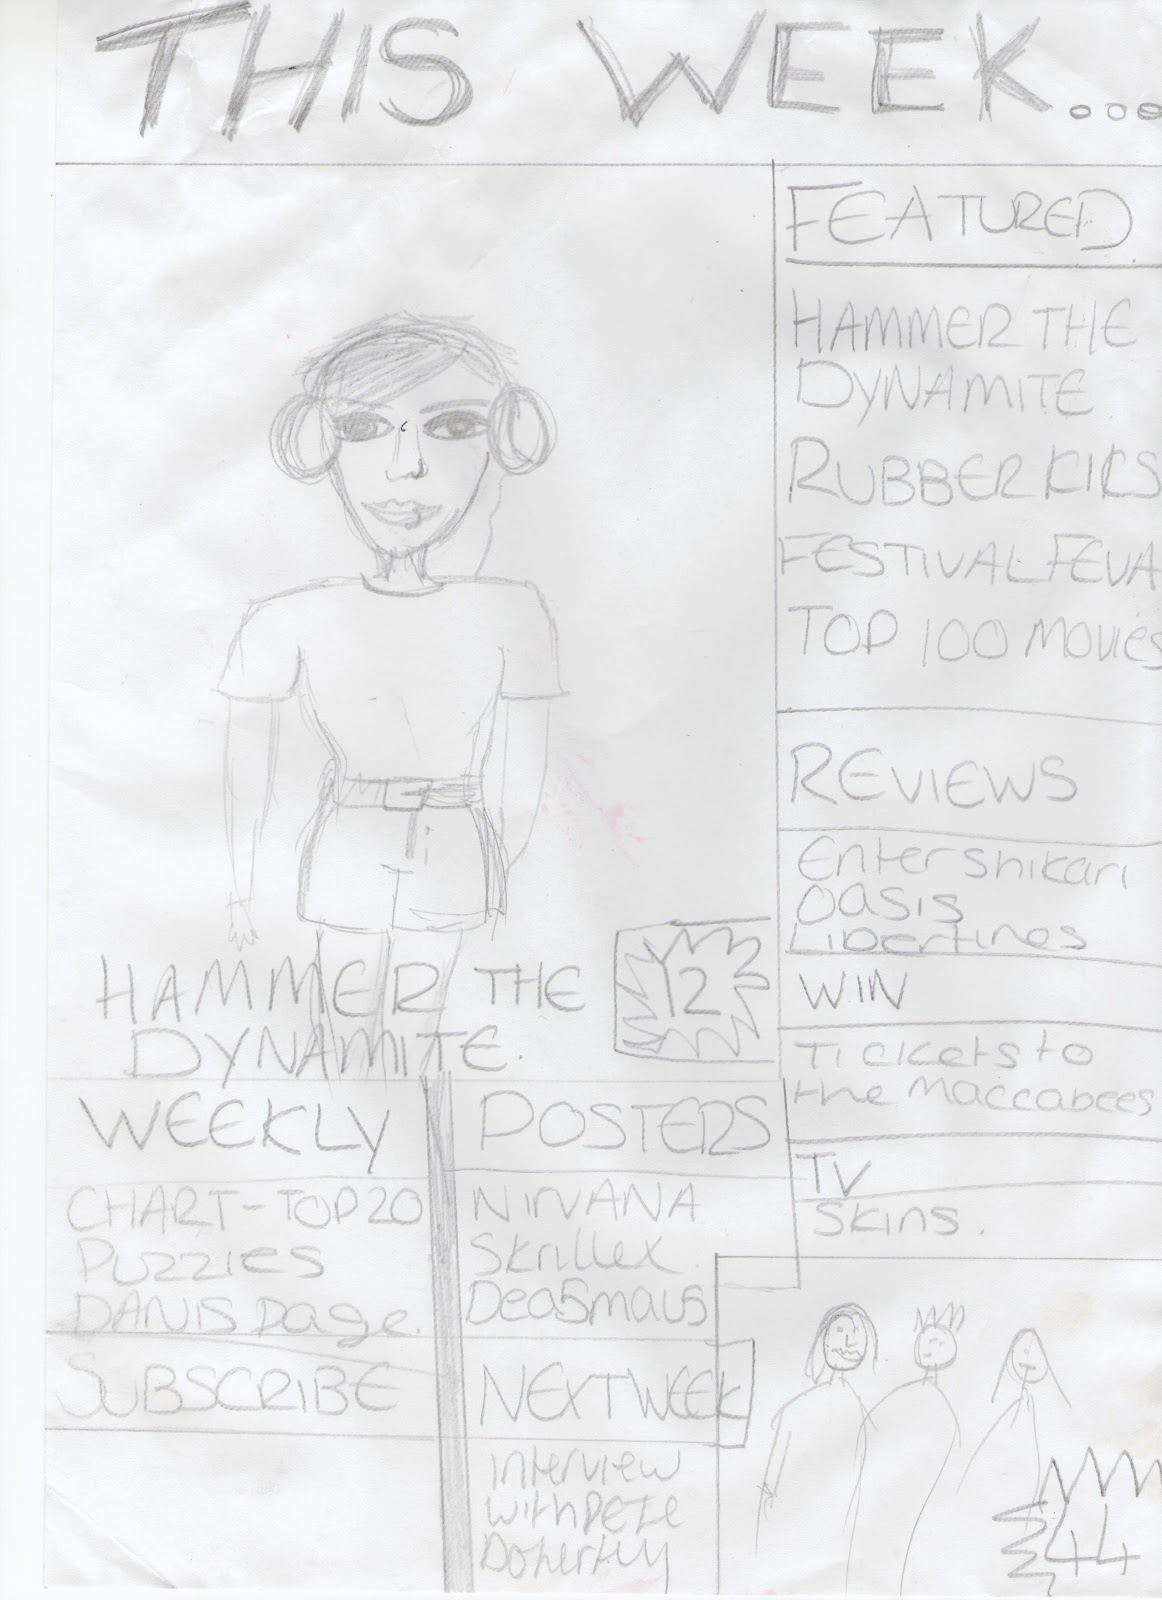 THIS WEEK...
FEATURED
HAMMER THE
DYNAMITE
RUBBER KIKS
FESTIVAL FEVA
TOP 100 MOVIES
REVIEWS
Enter Shikari
Oasis
Libertines
WIN
Tickets to
the Maccabees
TV
Skins.
HAMMER THE
DYNAMITE.
12
WEEKLY
CHART-TOP 20
Puzzles
DANIS page.
SUBSCRIBE
POSTERS
NIRVANA
Skrillex
Dea5mau5
NEXT WEEK
interview
with Pete
Doherty
44